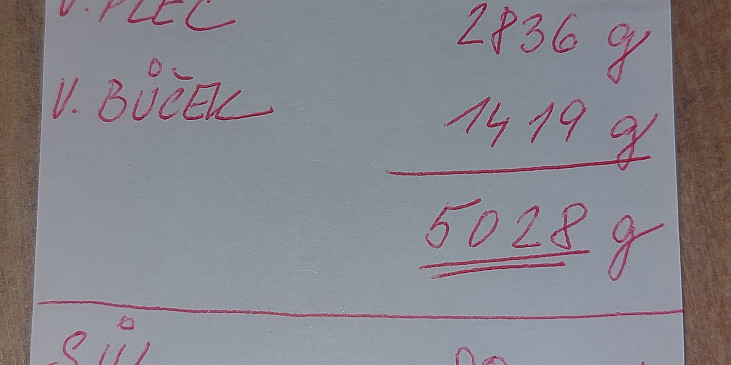 V. PLEC 2836 g
V. BŮČEK 1419 g
5028 g
SŮL